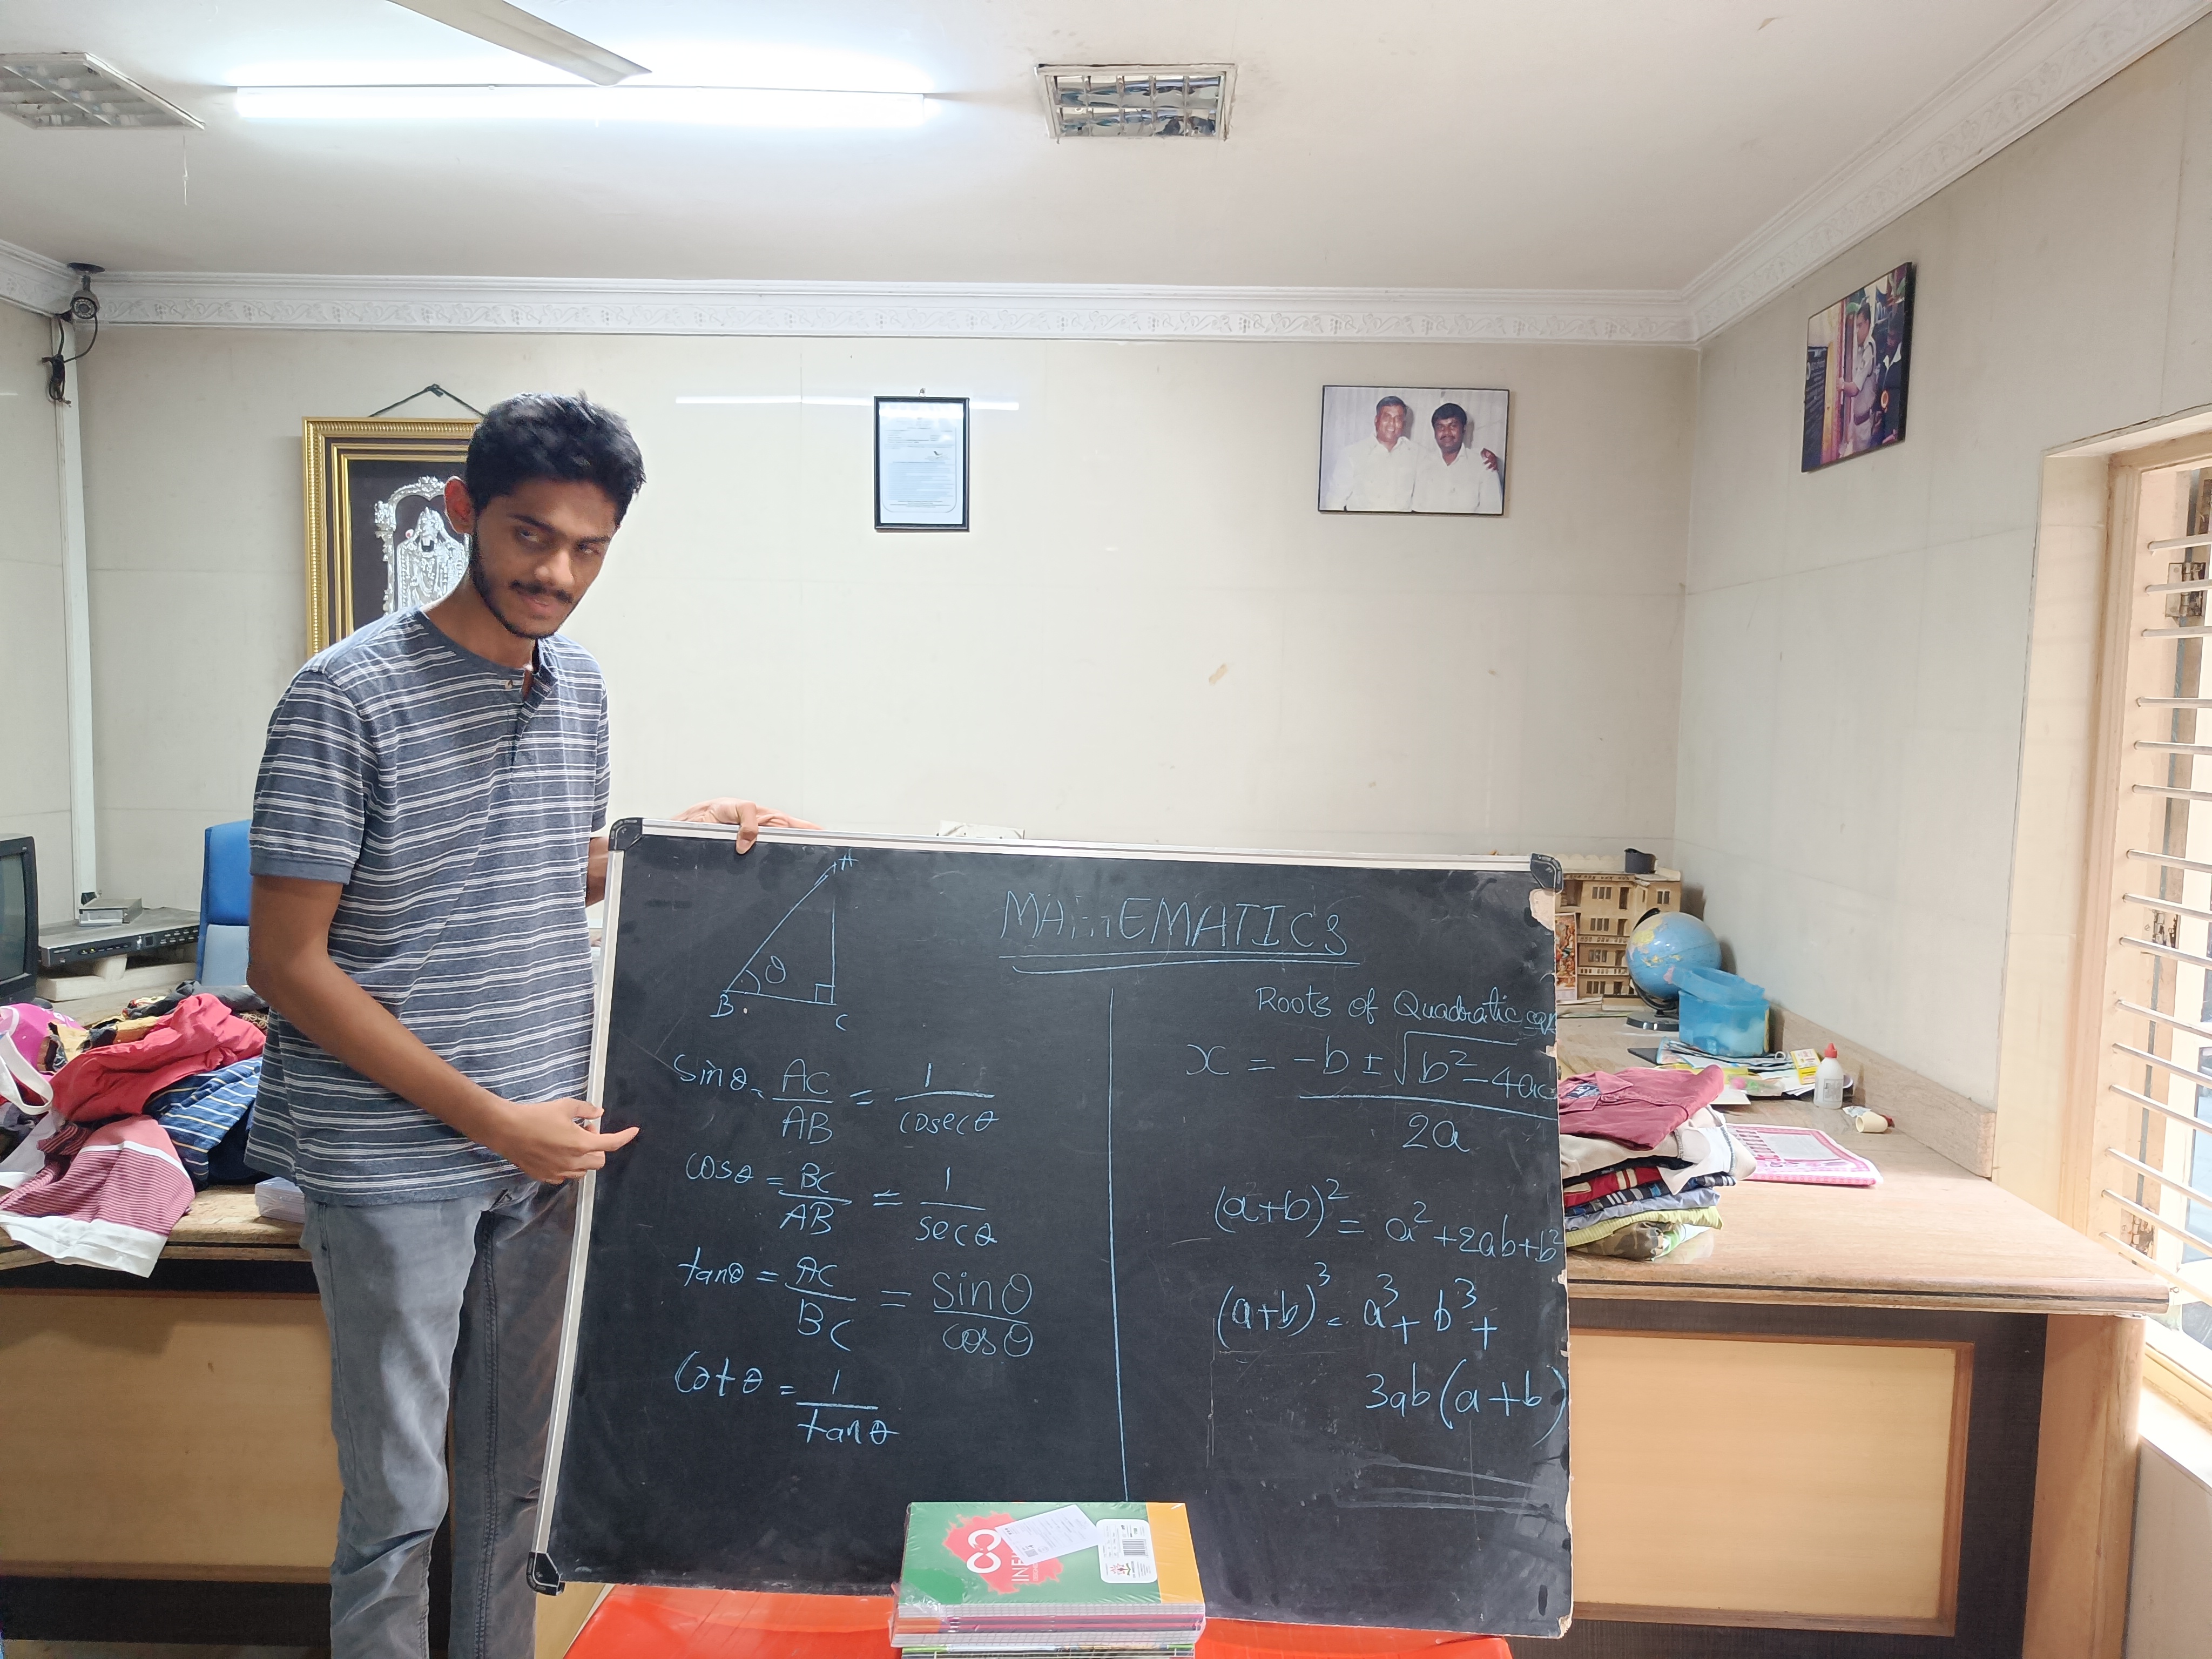 MATHEMATICS
A
θ
B C
sinθ = AC/AB = 1/cosecθ
cosθ = BC/AB = 1/secθ
tanθ = AC/BC = sinθ/cosθ
cotθ = 1/tanθ
Roots of Quadratic eqn
x = -b ± √b² - 4ac / 2a
(a+b)² = a² + 2ab + b²
(a+b)³ = a³ + b³ +
3ab(a+b)